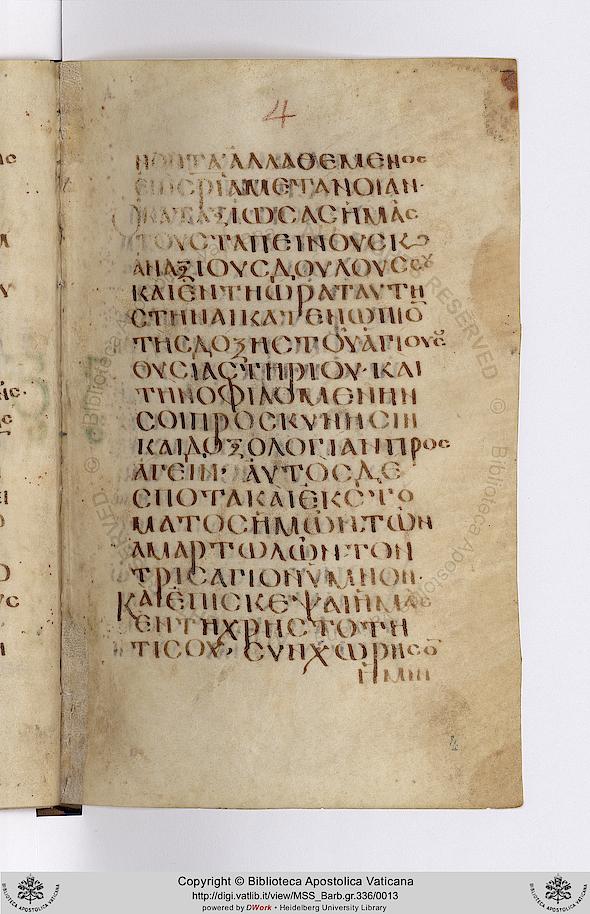 4
ΝΟΝΤΑ ἀλλὰ θέμενος
ἐπὶ σρίαν μετάνοιαν·
ὁ καταξιώσας ἡμᾶς
τοὺς ταπεινοὺς κ
ἀναξίους δούλους σου
καὶ ἐν τῇ ὥρᾳ ταύτῃ
στῆναι κατενώπιο
τῆς δόξης τοῦ ἁγίου σ
θυσιαστηρίου· καὶ
τὴν ὀφιλομένην
σοι προσκύνησιν
καὶ δοξολογίαν προσ
άγειν· αὐτὸς δέ
σποτα καὶ ἐκ στό
ματος ἡμῶν τῶν
ἁμαρτωλῶν τὸν
τρισάγιον ὕμνον·
καὶ ἐπίσκεψαι ἡμᾶς
ἐν τῇ χρηστότη
τί σου, συνχώρησο
ἡμῖν
Copyright © Biblioteca Apostolica Vaticana
http://digi.vatlib.it/view/MSS_Barb.gr.336/0013
powered by DWork • Heidelberg University Library